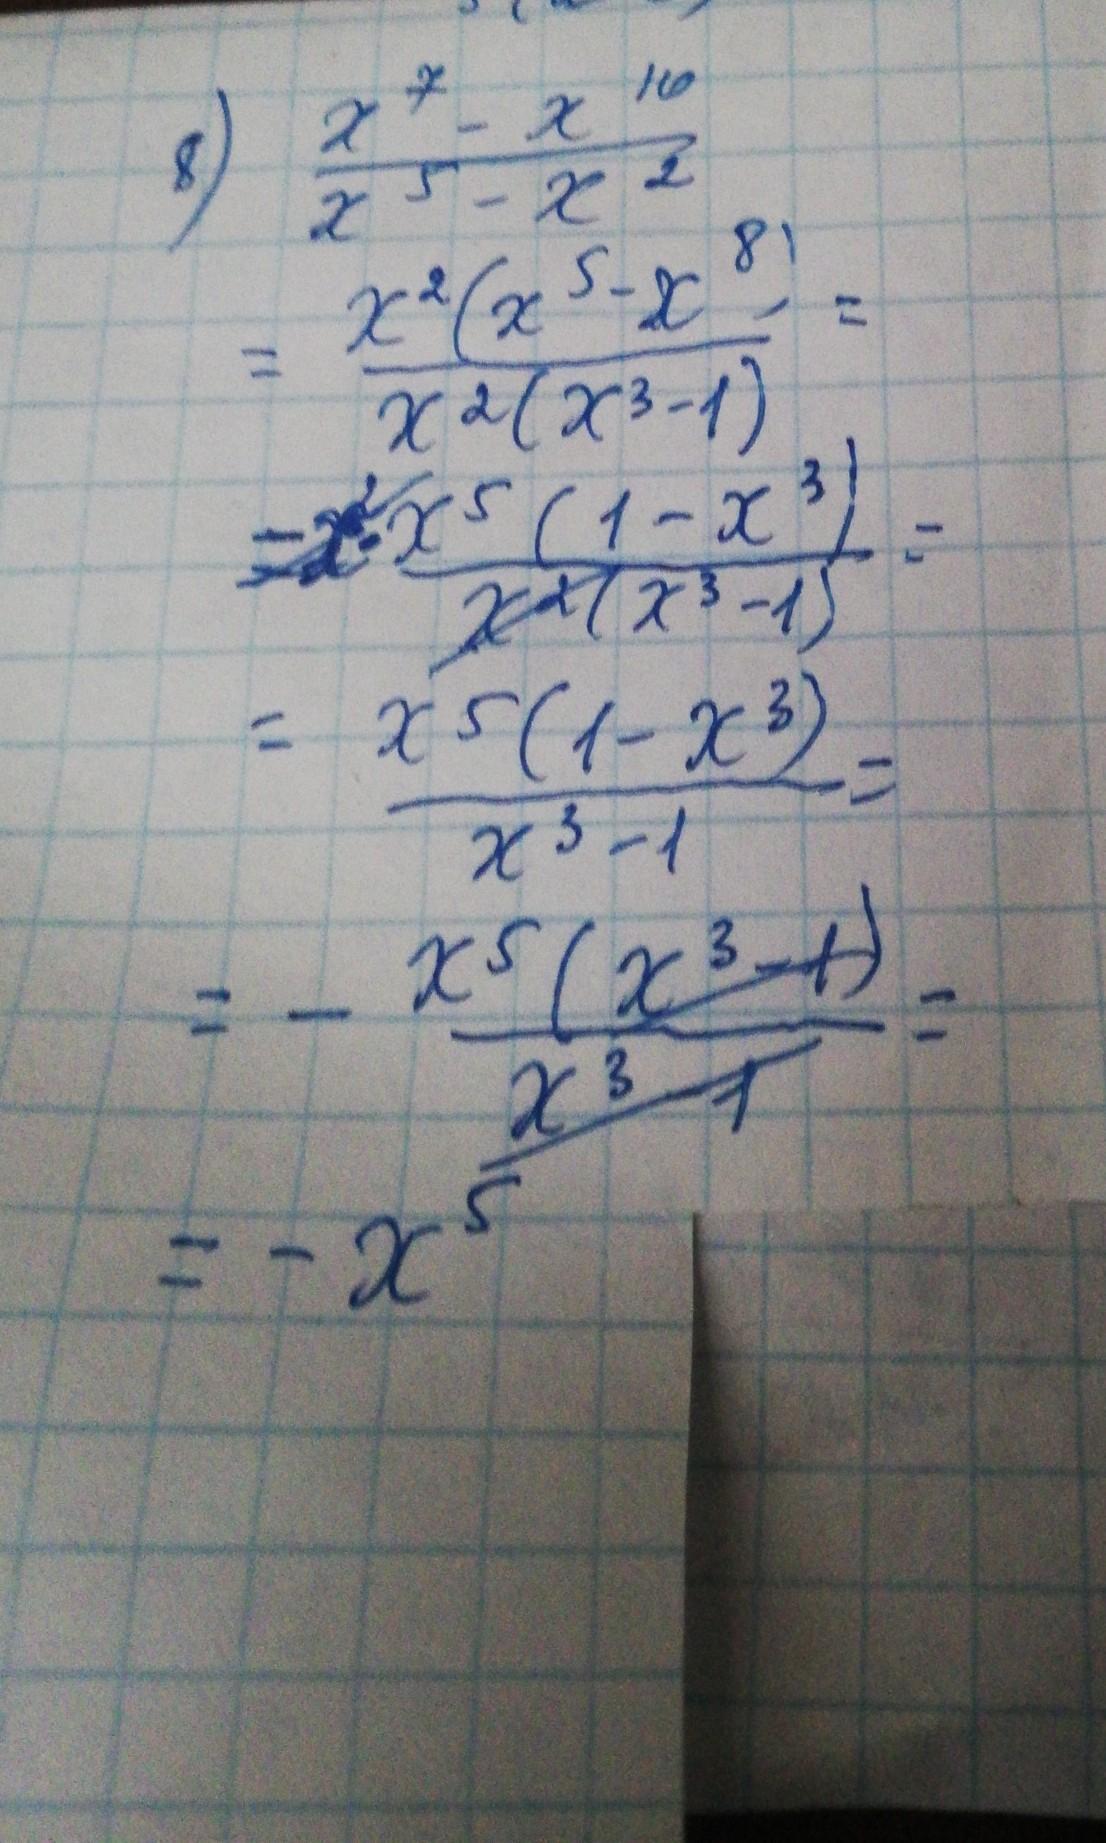 8) x⁷ - x¹⁰
x⁵ - x²
= x²(x⁵ - x⁸) =
x²(x³ - 1)
= x² · x⁵(1 - x³) =
x²(x³ - 1)
= x⁵(1 - x³) =
x³ - 1
= - x⁵(x³ - 1) =
x³ - 1
= - x⁵